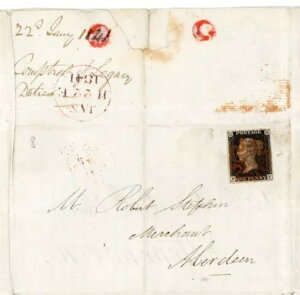 22d Jany 1841
Comptrol Legacy
Duties
1841
H 22 I
JAN
8
POSTAGE
ONE PENNY
Mr. Robert Stephen
Merchant
Aberdeen